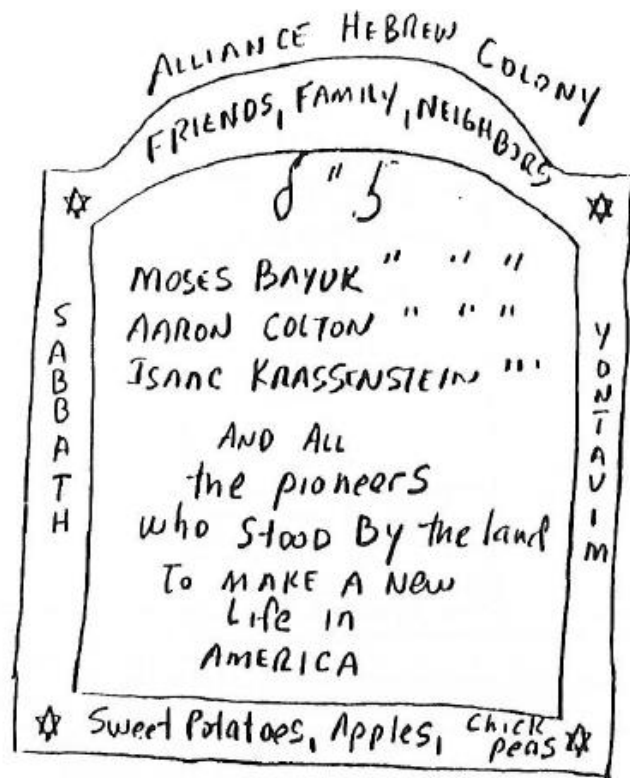 ALLIANCE HEBREW COLONY
FRIENDS, FAMILY, NEIGHBORS
MOSES BAYUK " " "
AARON COLTON " " "
ISAAC KRASSENSTEIN " " "
AND ALL
the pioneers
who STOOD By the land
To MAKE A New
Life in
AMERICA
SABBATH
YONTAVIM
Sweet Potatoes, Apples, Chick
peas